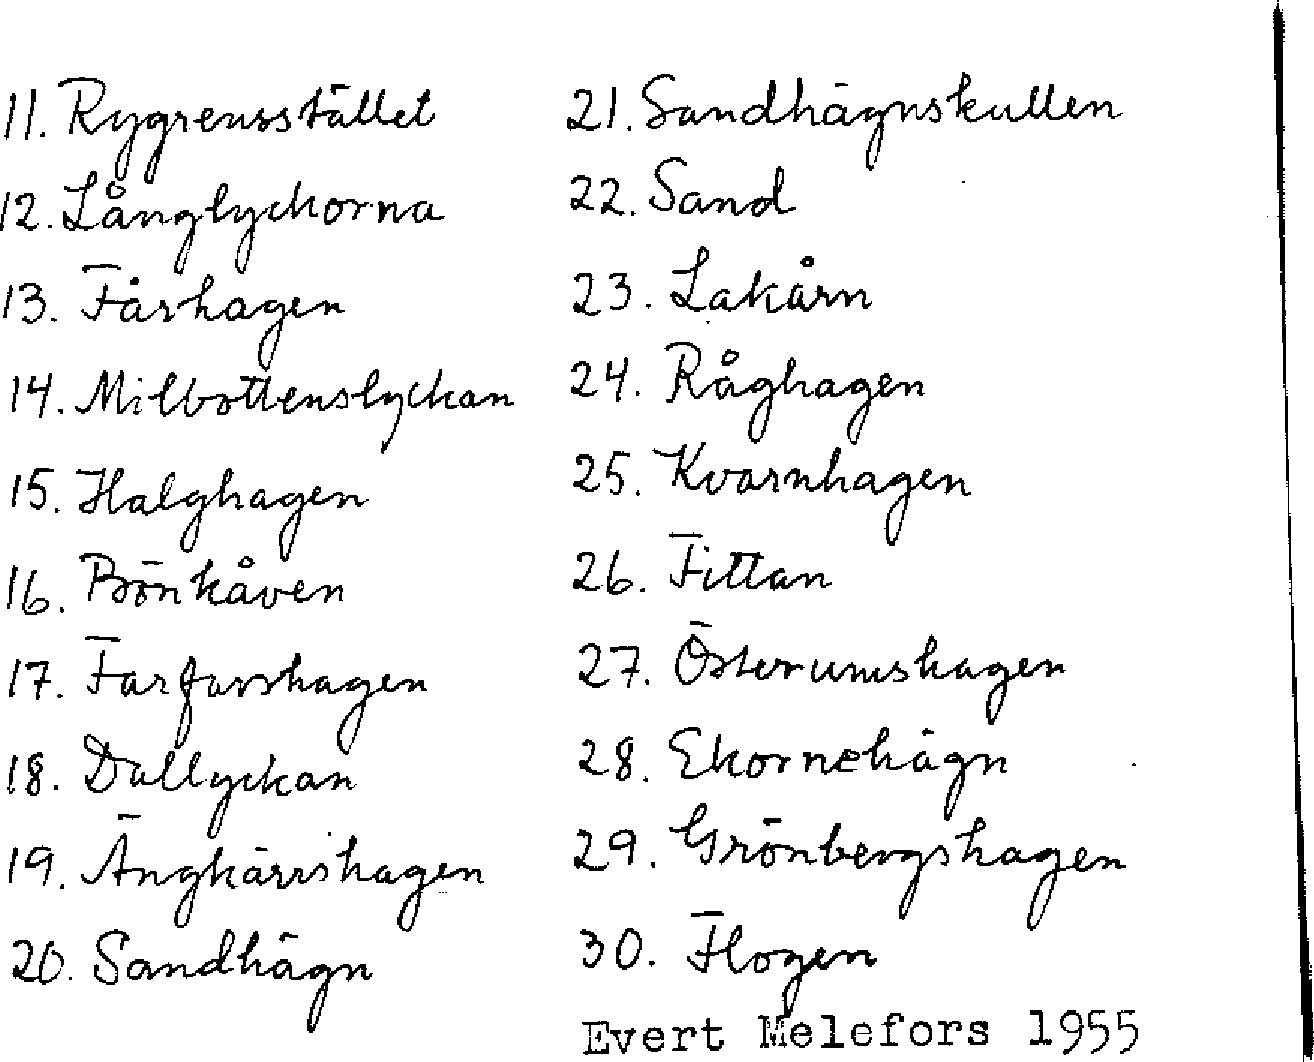 11. Rygrensstället
12. Långlyckorna
13. Fårhagen
14. Milbottenslyckan
15. Halghagen
16. Bönkåven
17. Farfarshagen
18. Dallyckan
19. Ängkärrshagen
20. Sandhägn
21. Sandhägnskullen
22. Sand
23. Lakårn
24. Råghagen
25. Kvarnhagen
26. Fittan
27. Österumshagen
28. Ekornehägn
29. Grönbergshagen
30. Flogen
Evert Melefors 1955